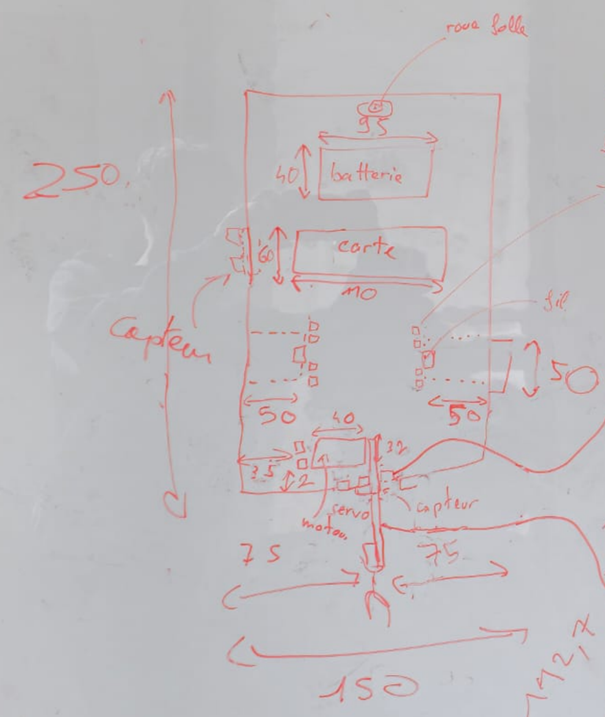 roue folle
95
250.
40
batterie
60
carte
110
Capteur
fil
50
50
50
40
35
32
2
servo
capteur
moteur
75
75
150